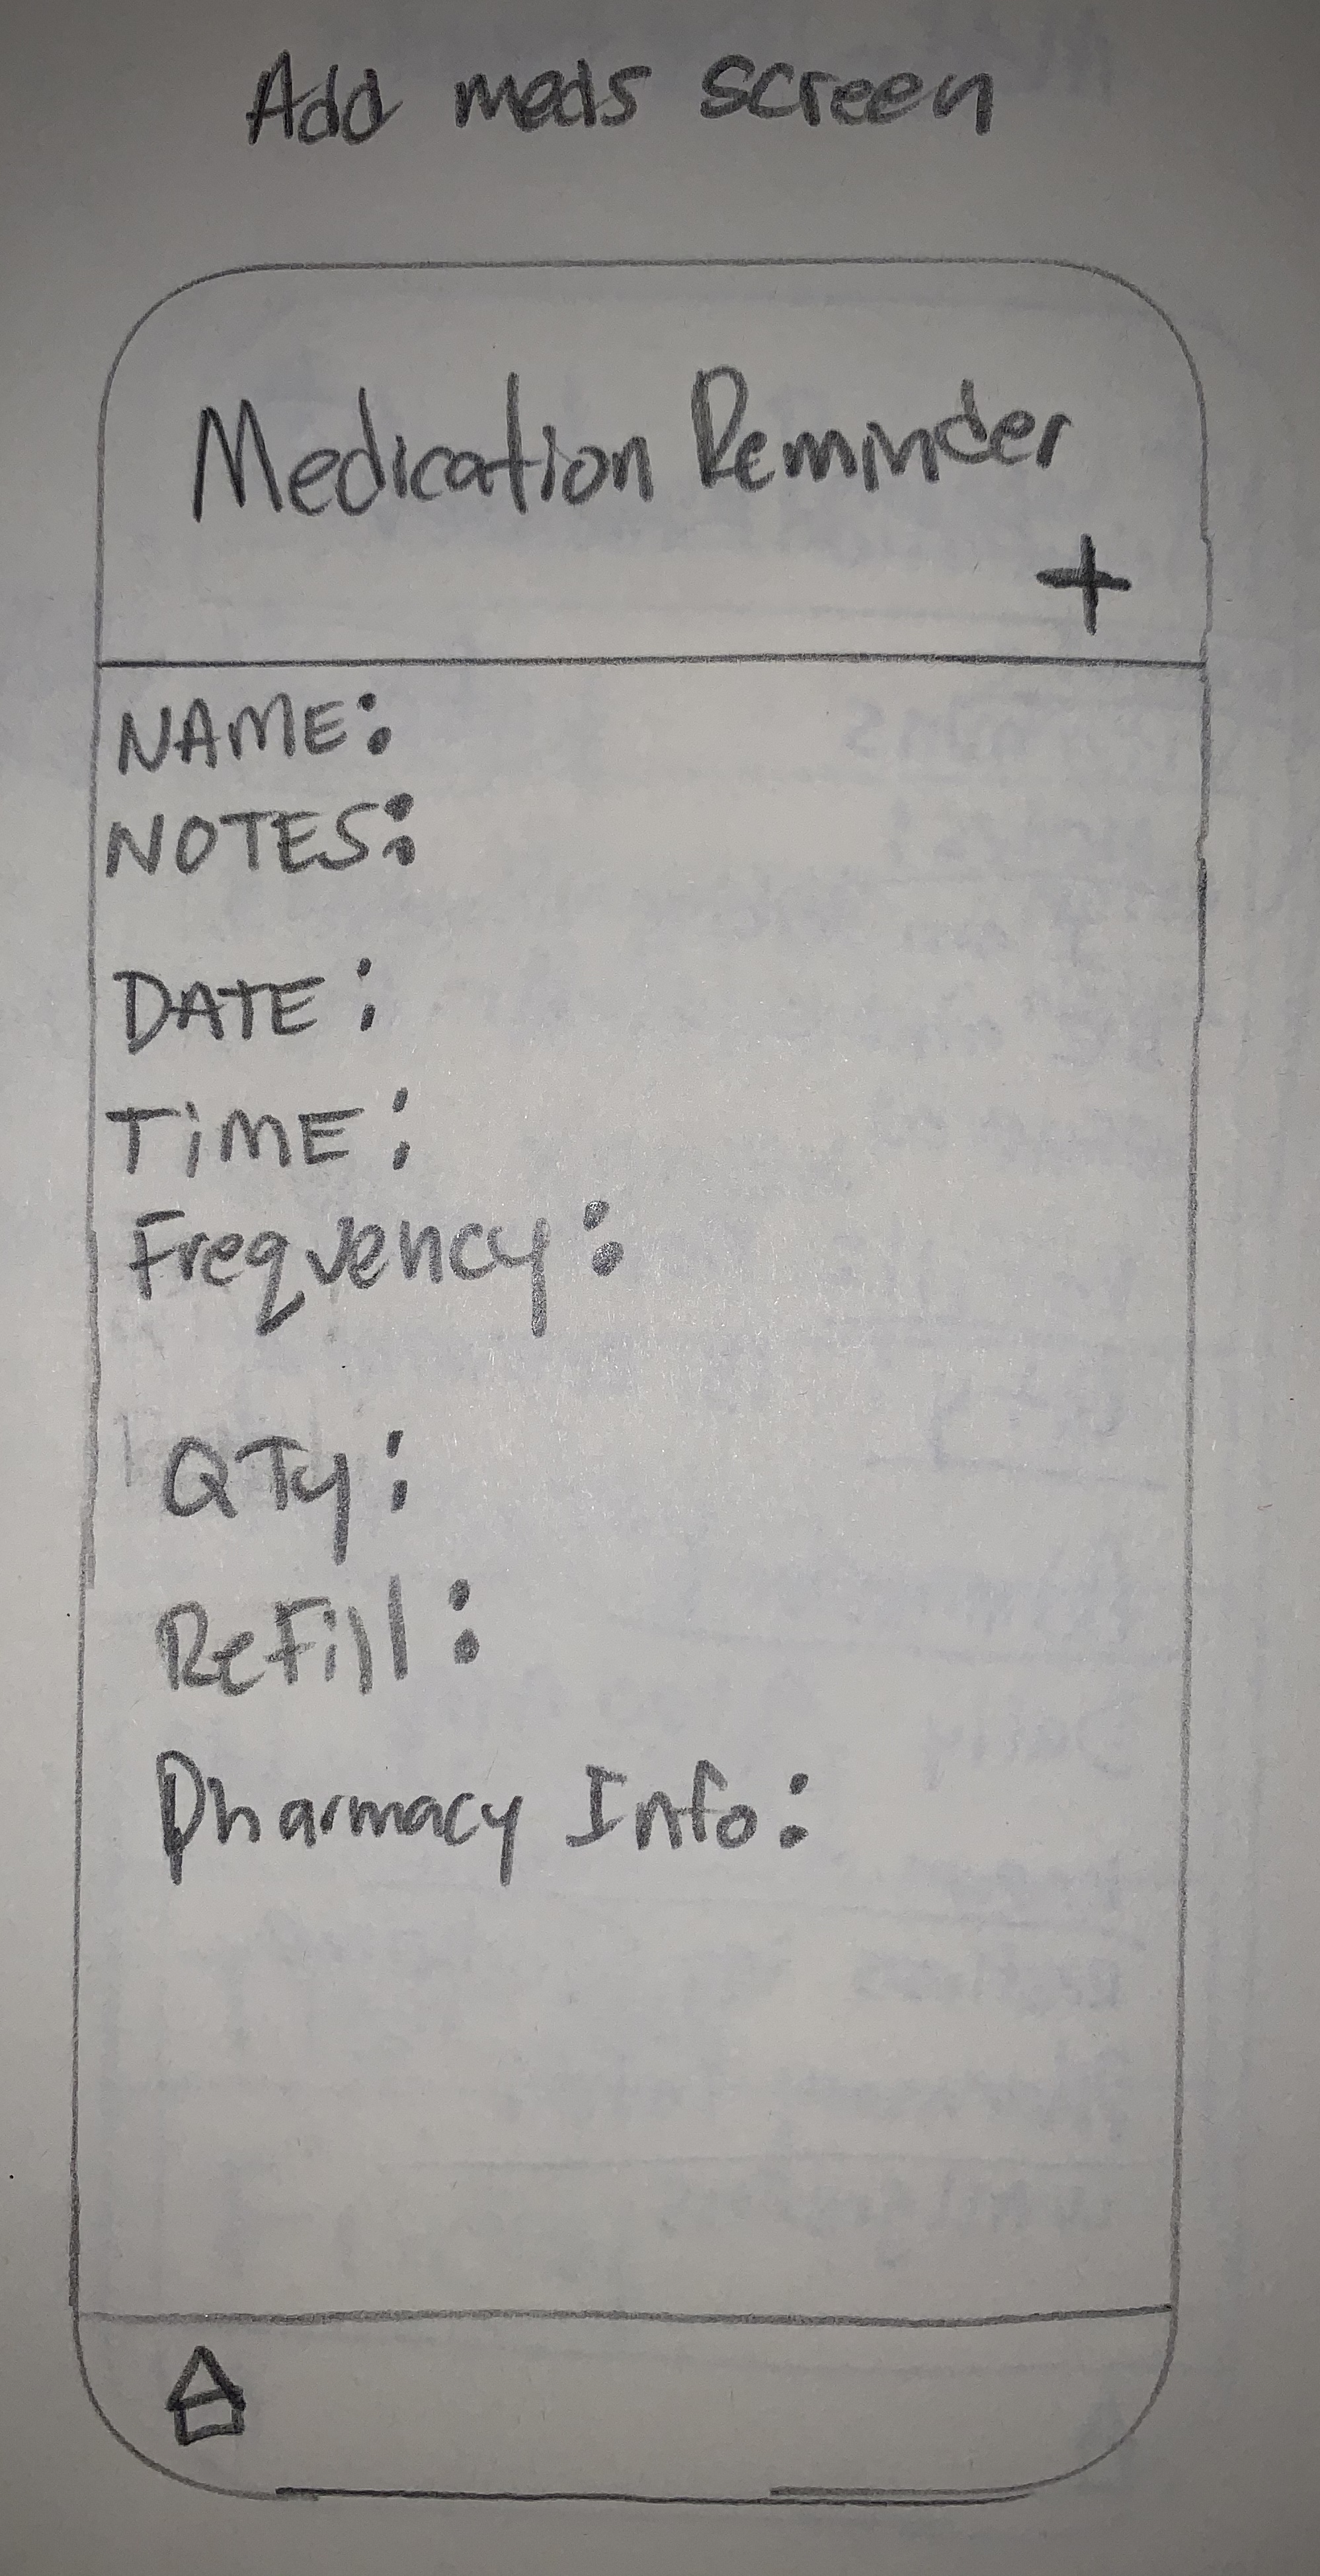 Add meds screen
Medication Reminder
+
NAME:
NOTES:
DATE:
TiME:
Frequency:
QTy:
ReFill:
Pharmacy Info: